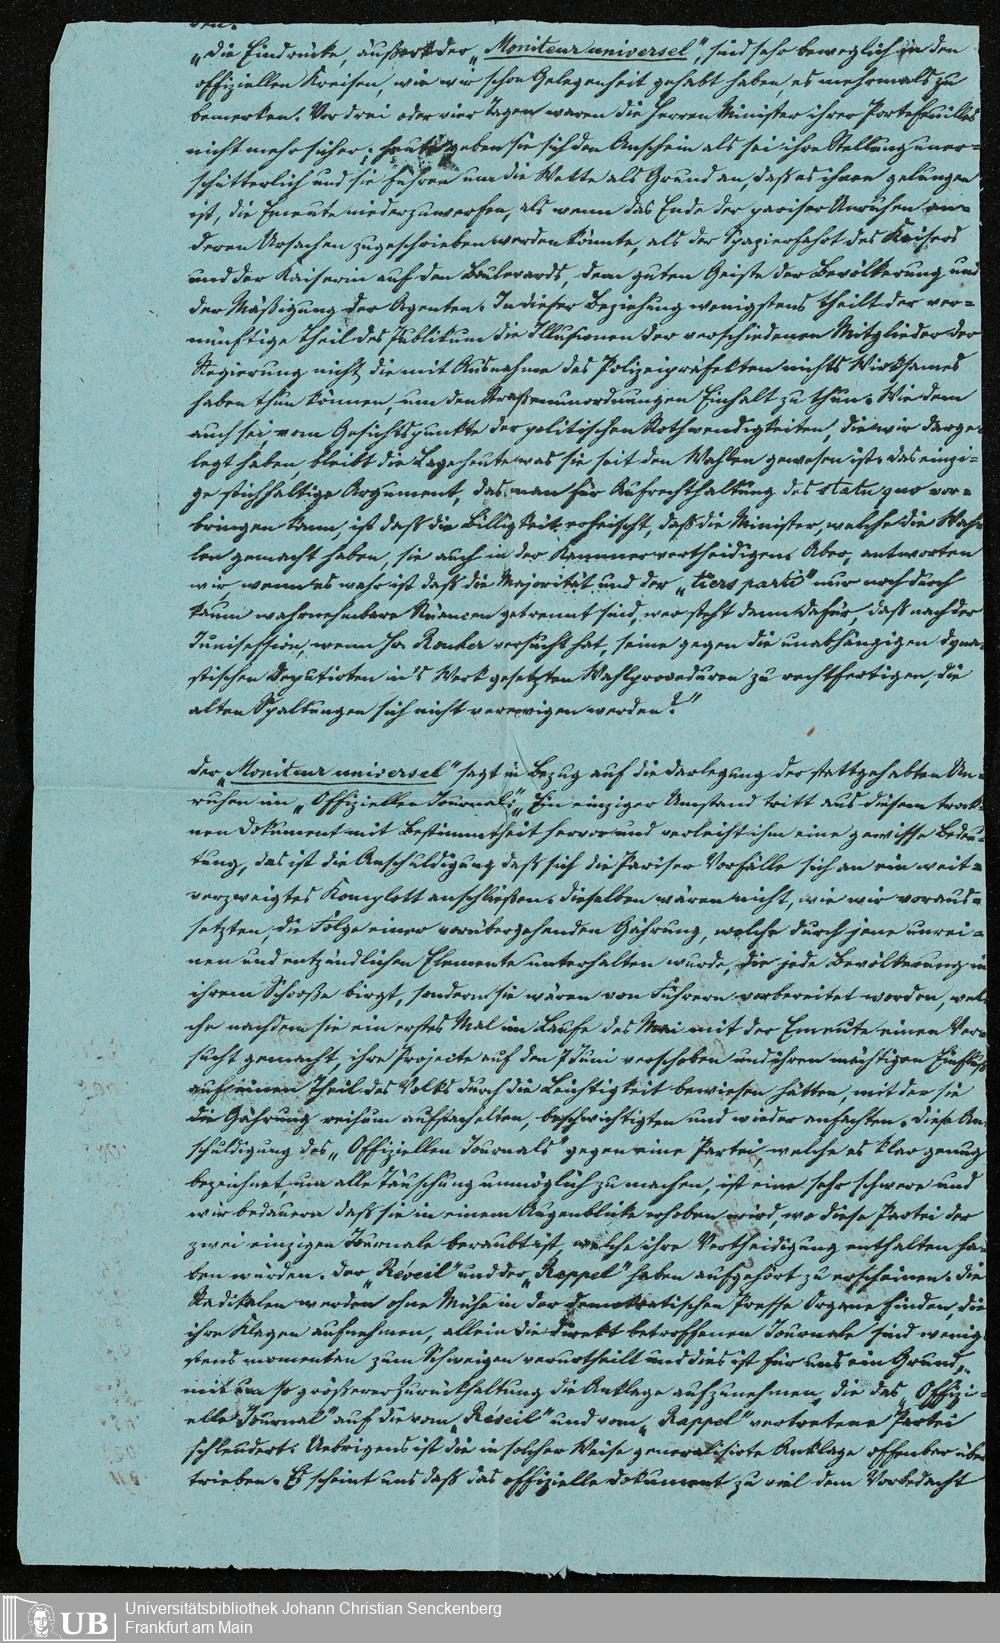 ren.
„Die Eindrücke, äußert der „Moniteur universel“, sind sehr beweglich in den
offiziellen Kreisen, wie wir schon Gelegenheit gehabt haben es mehrmals zu
bemerken. Vor drei oder vier Tagen waren die Herren Minister ihrer Portefeuilles
nicht mehr sicher; heute geben sie sich den Anschein als sei ihre Stellung uner-
schütterlich und sie führen um die Wette als Grund an, daß es ihnen gelungen
ist, die Emeute niederzuwerfen, als wenn das Ende der pariser Unruhen an-
deren Ursachen zugeschrieben werden könnte, als der Spazierfahrt des Kaisers
und der Kaiserin auf den Boulevards, dem guten Geiste der Bevölkerung und
der Mäßigung der Agenten. In dieser Beziehung wenigstens theilt der ver-
nünftige Theil des Publikum die Illusionen der verschiedenen Mitglieder der
Regierung nicht, die mit Ausnahme des Polizeipräfekten nichts Wirksames
haben thun können, um den Straßenunordnungen Einhalt zu thun. Wie dem
auch sei, vom Gesichtspunkte der politischen Nothwendigkeiten, die wir darge-
legt haben bleibt die Lage heute was sie seit den Wahlen gewesen ist. Das einzi-
ge stichhaltige Argument, das man für Aufrechthaltung des statu quo vor-
bringen kann, ist daß die Billigkeit erheischt, daß die Minister, welche die Wah-
len gemacht haben, sie auch in der Kammer vertheidigen. Aber, antworten
wir, wenn es wahr ist daß die Majorität und der „tiers parti“ nur noch durch
kaum wahrnehmbare Nüancen getrennt sind, wer steht dann dafür, daß nach der
Junisession, wenn Hr Rouher versucht hat, seine gegen die unabhängigen dyna-
stischen Deputirten in's Werk gesetzten Wahlproceduren zu rechtfertigen, die
alten Spaltungen sich nicht verewigen werden?“
Der „Moniteur universel“ sagt in Bezug auf die Darlegung der stattgehabten Un-
ruhen im „Offiziellen Journal“: „Ein einziger Umstand tritt aus diesem trock-
nen Dokument mit Bestimmtheit hervor und verleiht ihm eine gewisse Bedeu-
tung, das ist die Anschuldigung daß sich die Pariser Vorfälle sich an ein weit-
verzweigtes Komplott anschließen. Dieselben wären nicht, wie wir voraus-
setzten die Folge einer vorübergehenden Gährung, welche durch jene unrei-
nen und entzündlichen Elemente unterhalten wurde, die jede Bevölkerung in
ihrem Schooße birgt, sondern sie wären von Führern vorbereitet worden, wel-
che nachdem sie ein erstes Mal im Laufe des Mai mit der Emeute einen Ver-
sucht gemacht, ihre Projecte auf den 7 Juni verschoben und ihren mächtigen Einfluß
auf einen Theil des Volks durch die Leichtigkeit bewiesen hätten, mit der sie
die Gährung reihum aufstachelten, beschwichtigten und wieder anfachten. Diese An-
schuldigung des „Offiziellen Journals“ gegen eine Partei welche es klar genug
bezeichnet, um alle Täuschung unmöglich zu machen, ist eine sehr schwere und
wir bedauern daß sie in einem Augenblicke erhoben wird, wo diese Partei der
zwei einzigen Journale beraubt ist, welche ihre Vertheidigung enthalten ha-
ben würden. Der „Réveil“ und der „Rappel“ haben aufgehört zu erscheinen. Die
Radikalen werden ohne Mühe in der demokratischen Presse Organe finden, die
ihre Klagen aufnehmen, allein die direkt betroffenen Journale sind wenig-
stens momentan zum Schweigen verurtheilt und dies ist für uns ein Grund,
mit um so größerer Zurückhaltung die Anklage aufzunehmen, die das „Offizi-
elle Journal“ auf die vom „Réveil“ und vom „Rappel“ vertretene Partei
schleudert. Uebrigens ist die in solcher Weise generalisirte Anklage offenbar über-
trieben. Es scheint uns daß das offizielle Dokument zu viel dem Vorbedacht
UB
Universitätsbibliothek Johann Christian Senckenberg
Frankfurt am Main